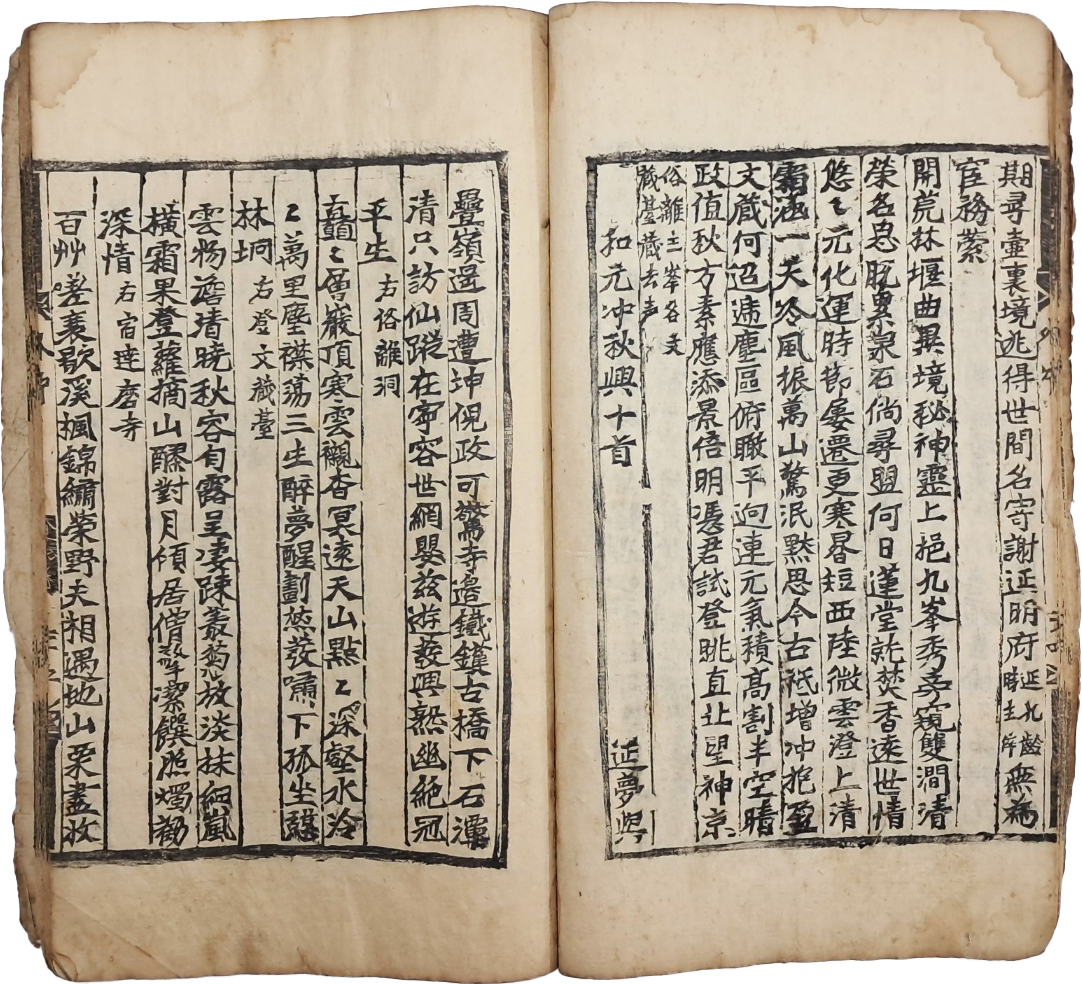 期尋壺裏境逃得世間名寄謝延明府延九齡時主倅無為
宦務縈
開荒林堰曲異境秘神靈上挹九峯秀旁窺雙澗清
榮名思脫累泉石倘尋盟何日蓮堂話焚香遠世情
悠〻元化運時節屢遷更寒晷短西陸微雲澄上清
霜涵一天冷風振萬山驚泯默思今古祗增冲抱盈
文蔵何迢遞塵區俯瞰平逈連元氣積高割半空晴
政值秋方素應添景倍明憑君試登眺直北望神京
俗離主峯名文
蔵臺蔵去声
和元冲秋興十首
延夢與
疊嶺邊周遭坤倪政可驚寺邊鐵鑊古橋下石潭
清只訪仙蹤在寧容世網嬰兹遊發興熟幽絶冠
平生右俗離洞
矗〻層巖頂寒雲襯杳冥遠天山點〻深壑水泠
〻萬里塵襟蕩三生醉夢醒劃然發嘯下孤坐憩
林坰右登文蔵臺
雲物澹清曉秋容旬露呈凄疎叢菊放淡抹細嵐
橫霜果登蘿摘山醪對月傾居僧挈潔饌照燭勸
深情右宿達磨寺
百艸差衰歇溪楓錦繡縈野夫相遇地山栗盡收